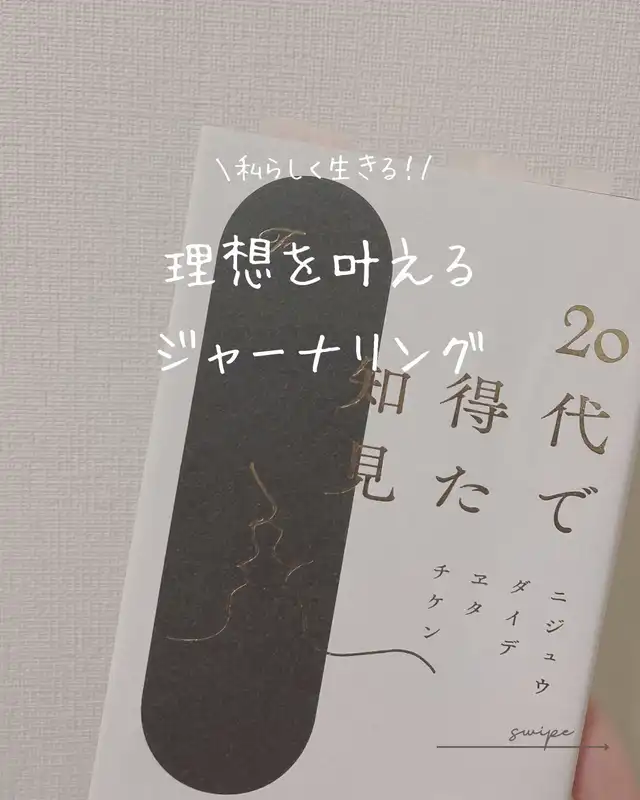 \私らしく生きる!/
理想を叶える
ジャーナリング
20代で
得た
知見
ニジュウ
ダイデ
ヱタ
チケン
swipe